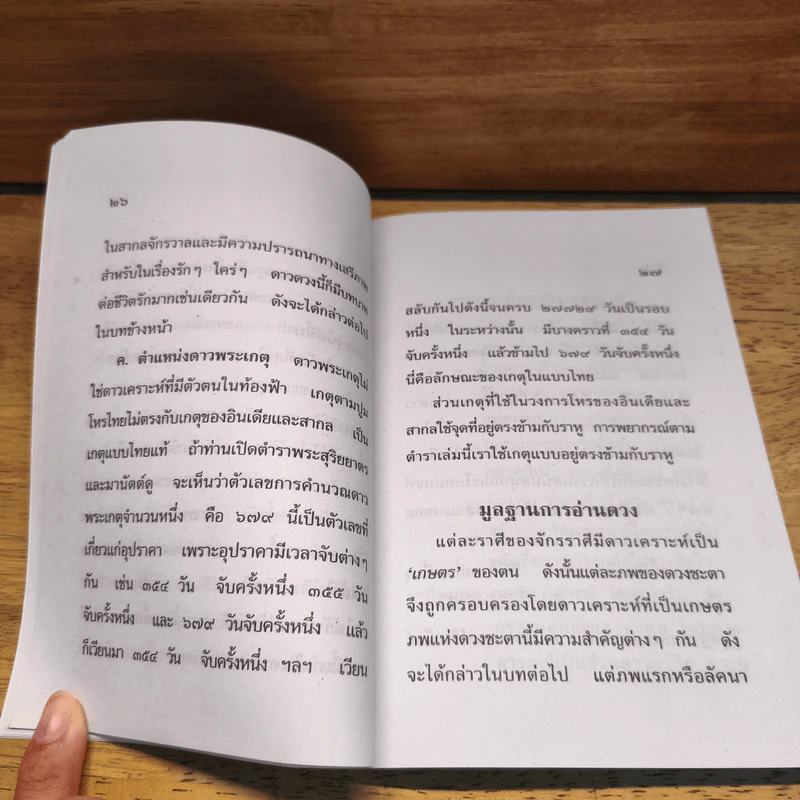 ๒๖
ในสากลจักรวาลและมีความปรารถนาทางเสรีภาพ
สำหรับในเรื่องรัก ๆ ใคร่ ๆ ดาวดวงนี้ก็มีบทบาท
ต่อชีวิตรักมากเช่นเดียวกัน ดังจะได้กล่าวต่อไป
ในบทข้างหน้า
ค. ตำแหน่งดาวพระเกตุ ดาวพระเกตุไม่
ใช่ดาวเคราะห์ที่มีตัวตนในท้องฟ้า เกตุตามปูม
โหรไทยไม่ตรงกับเกตุของอินเดียและสากล เป็น
เกตุแบบไทยแท้ ถ้าท่านเปิดตำราพระสุริยยาตร
และมานัตต์ดู จะเห็นว่าตัวเลขการคำนวณดาว
พระเกตุจำนวนหนึ่ง คือ ๖๗๙ นี้เป็นตัวเลขที่
เกี่ยวแก่อุปราคา เพราะอุปราคามีเวลาจับต่างๆ
กัน เช่น ๓๕๔ วัน จับครั้งหนึ่ง ๓๕๕ วัน
จับครั้งหนึ่ง และ ๖๗๙ วันจับครั้งหนึ่ง แล้ว
ก็เวียนมา ๓๕๔ วัน จับครั้งหนึ่ง ฯลฯ เวียน
๒๗
สลับกันไปดังนี้จนครบ ๒๗๗๒๙ วันเป็นรอบ
หนึ่ง ในระหว่างนั้น มีบางคราวที่ ๓๕๔ วัน
จับครั้งหนึ่ง แล้วข้ามไป ๖๗๙ วันจับครั้งหนึ่ง
นี่คือลักษณะของเกตุในแบบไทย
ส่วนเกตุที่ใช้ในวงการโหรของอินเดียและ
สากลใช้จุดที่อยู่ตรงข้ามกับราหู การพยากรณ์ตาม
ตำราเล่มนี้เราใช้เกตุแบบอยู่ตรงข้ามกับราหู
มูลฐานการอ่านดวง
แต่ละราศีของจักรราศีมีดาวเคราะห์เป็น
'เกษตร' ของตน ดังนั้นแต่ละภพของดวงชะตา
จึงถูกครอบครองโดยดาวเคราะห์ที่เป็นเกษตร
ภพแห่งดวงชะตานี้มีความสำคัญต่าง ๆ กัน ดัง
จะได้กล่าวในบทต่อไป แต่ภพแรกหรือลัคนา